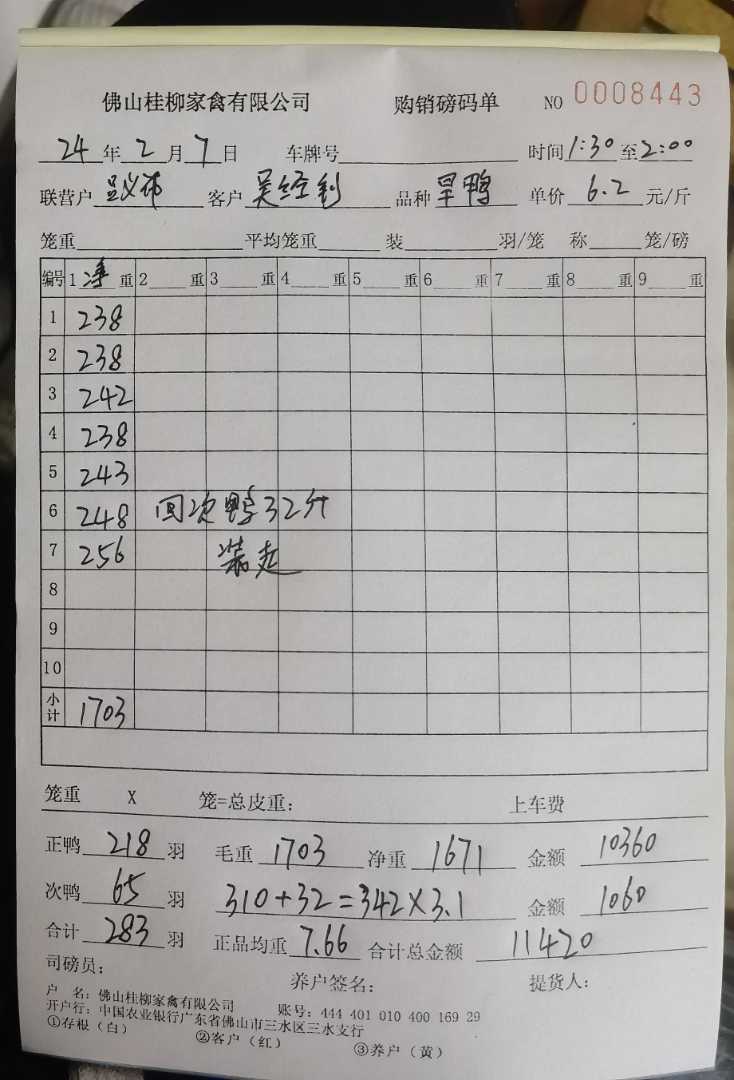 佛山桂柳家禽有限公司 购销磅码单 NO 0008443
24年2月7日 车牌号 时间1:30至2:00
联营户 客户 吴经利 品种 旱鸭 单价 6.2 元/斤
笼重 平均笼重 装 羽/笼 称 笼/磅
编号 1 净 重 2 重 3 重 4 重 5 重 6 重 7 重 8 重 9 重
1 238
2 238
3 242
4 238
5 243
6 248 回次鸭32斤
7 256 装走
8
9
10
小计 1703
笼重 X 笼=总皮重: 上车费
正鸭 218 羽 毛重 1703 净重 1671 金额 10360
次鸭 65 羽 310+32=342×3.1 金额 1060
合计 283 羽 正品均重 7.66 合计总金额 11420
司磅员: 养户签名: 提货人:
户 名: 佛山桂柳家禽有限公司 账号: 444 401 010 400 169 29
开户行: 中国农业银行广东省佛山市三水区三水支行
①存根（白） ②客户（红） ③养户（黄）